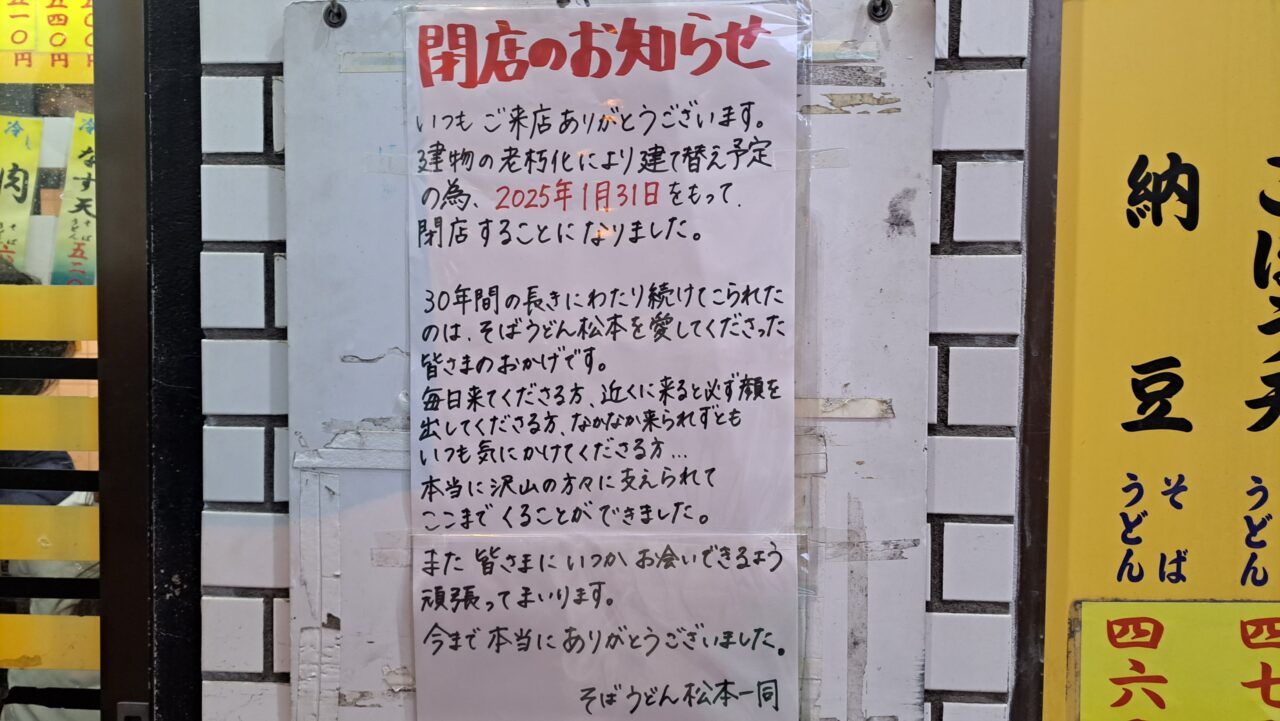 閉店のお知らせ
いつもご来店ありがとうございます。
建物の老朽化により建て替え予定
の為、2025年1月31日をもって、
閉店することになりました。
30年間の長きにわたり続けてこられた
のは、そばうどん松本を愛してくださった
皆さまのおかげです。
毎日来てくださる方、近くに来ると必ず顔を
出してくださる方、なかなか来られずとも
いつも気にかけてくださる方…
本当に沢山の方々に支えられて
ここまでくることができました。
また皆さまにいつかお会いできるよう
頑張ってまいります。
今まで本当にありがとうございました。
そばうどん松本一同
五一〇円
五四〇円
冷し
肉
冷し
なす天
そば
うどん
五二〇
納豆
そば
うどん
四六
うどん
四七